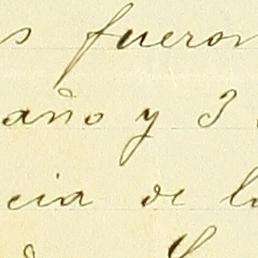 s fueron
año y 3
cia de l